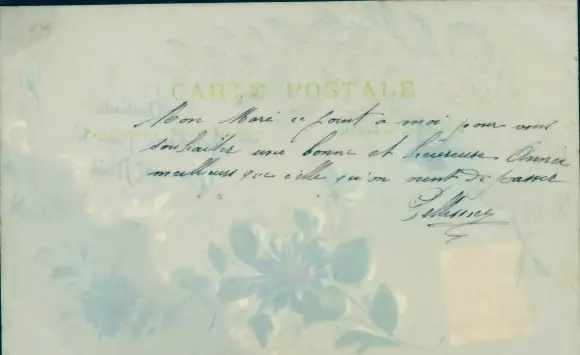 CARTE POSTALE
Mon Mari ce joint a moi pour vous
souhaiter une bonne et heureuse Année
meilleurs que celle qu'on vient de passer